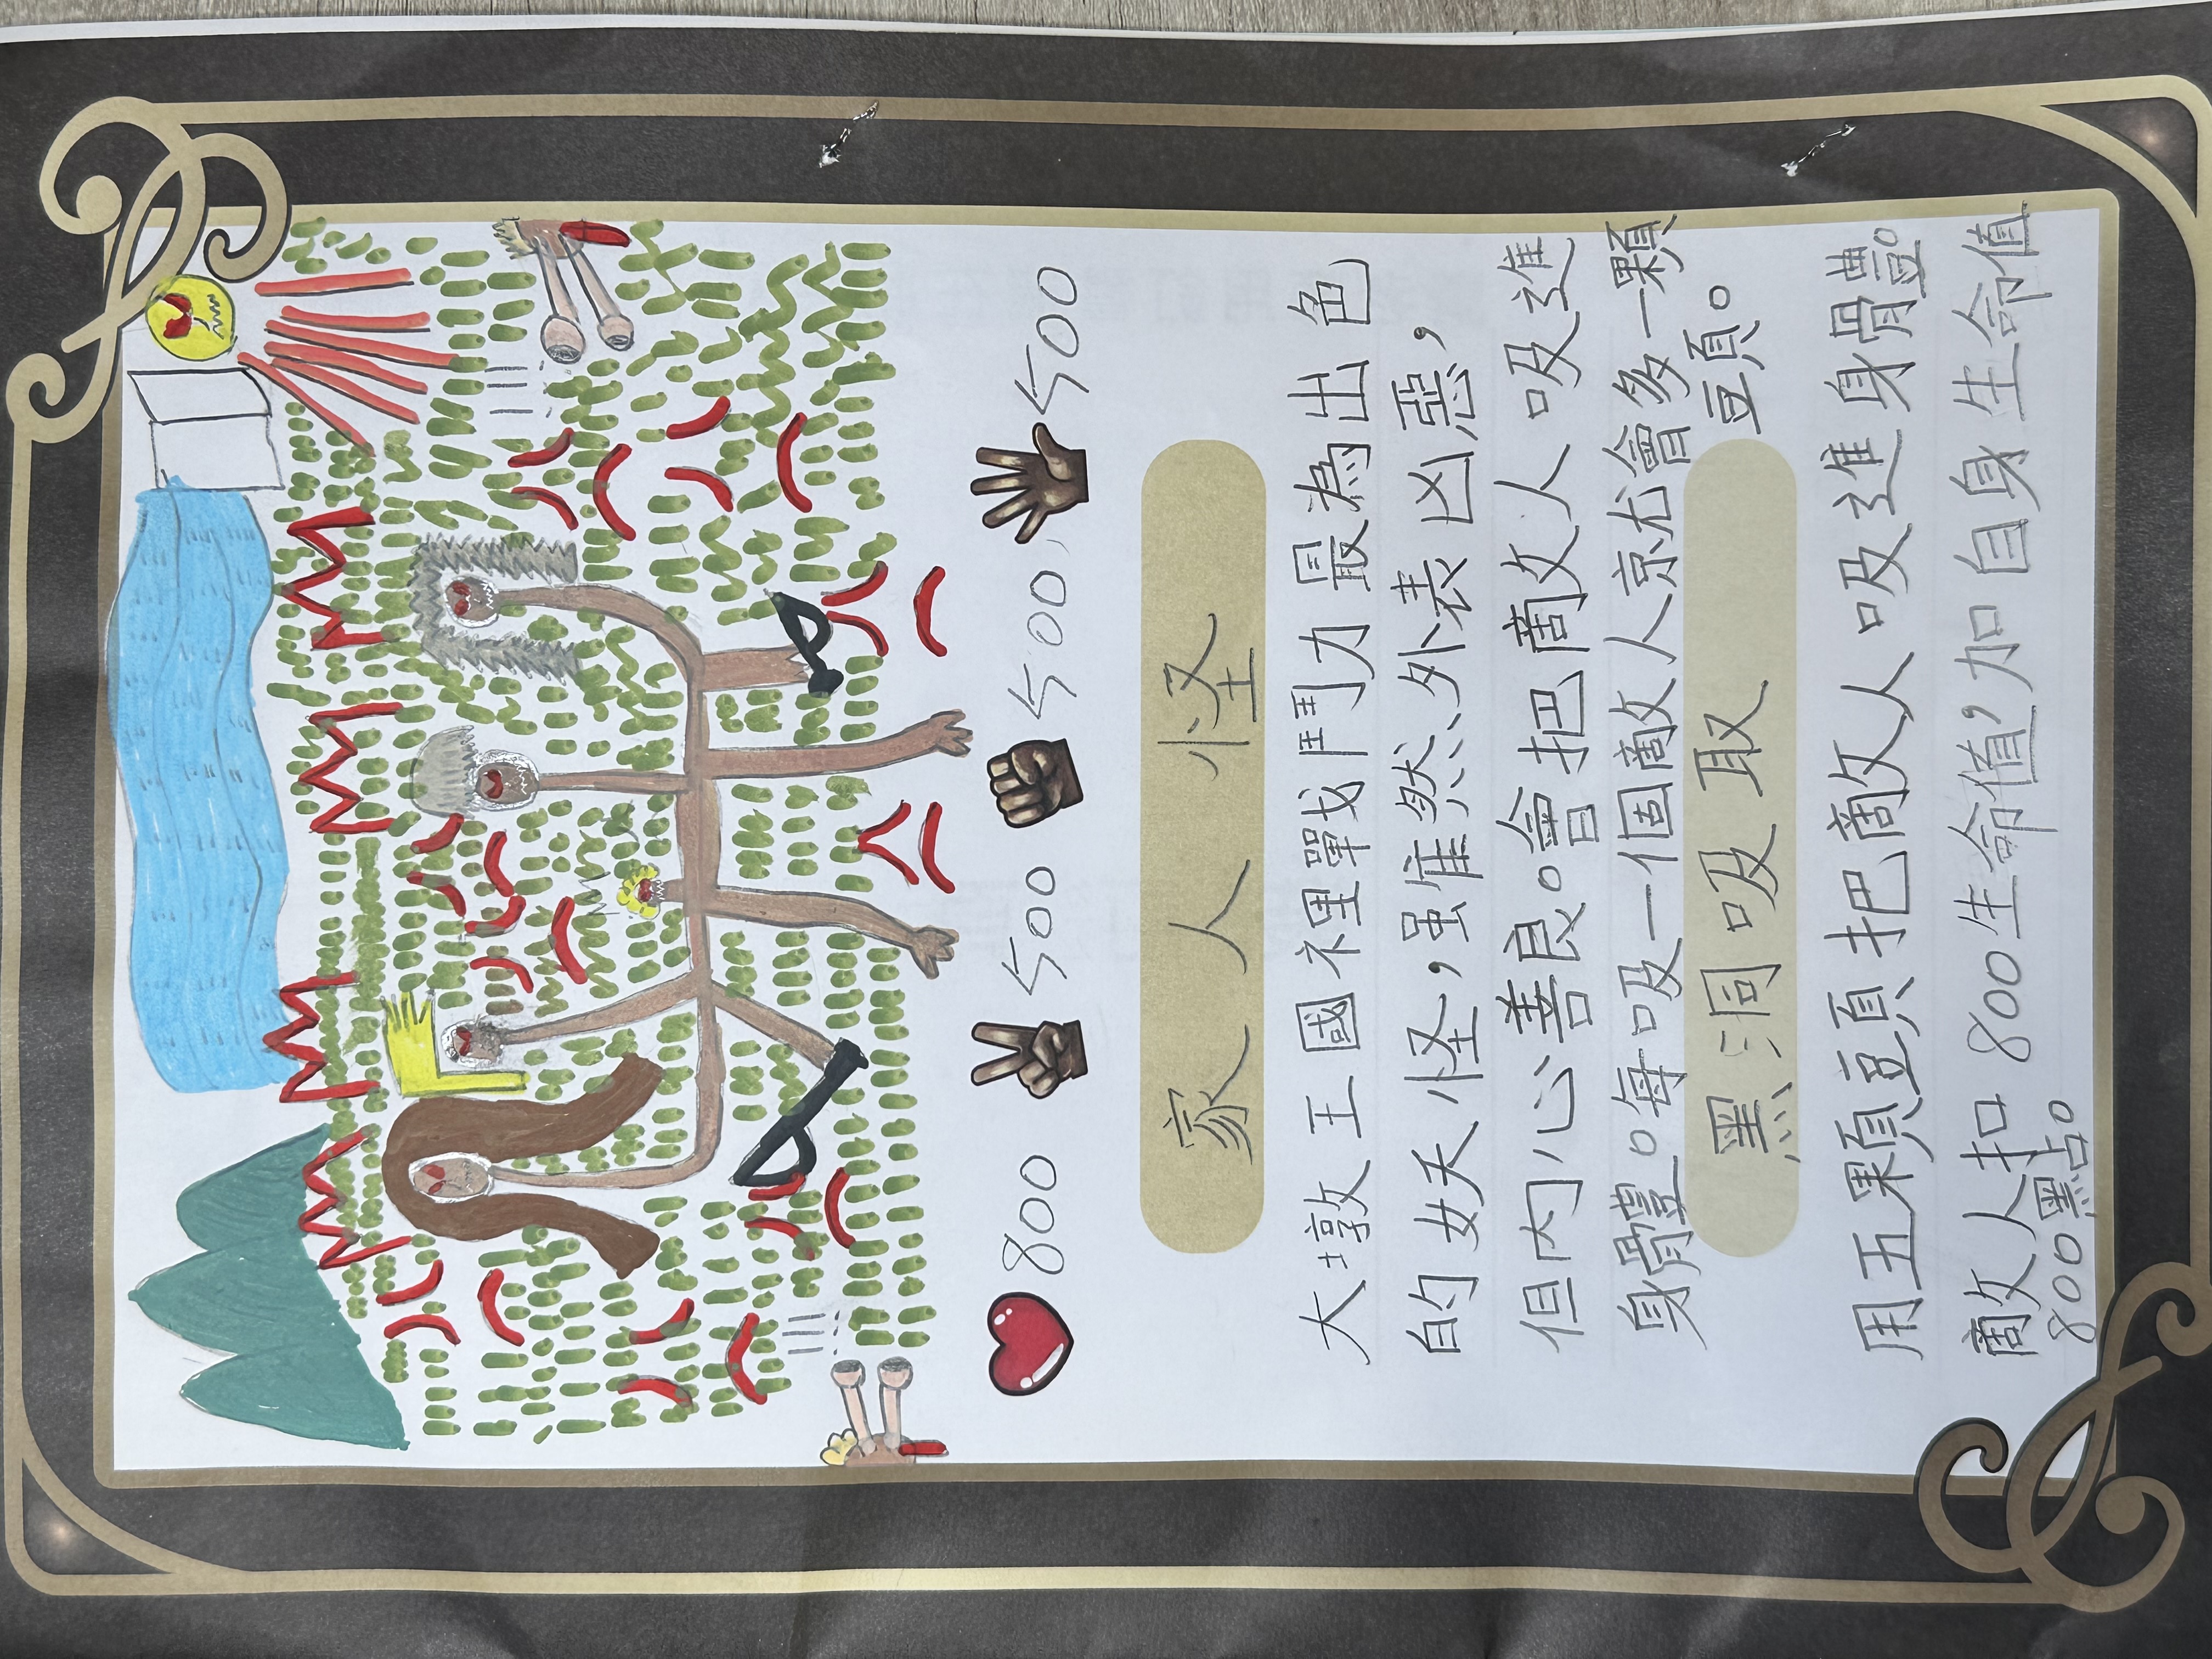 800 500 500 500
家人怪
大墩王國裡戰鬥力最為出色
的妖怪，虽隹然外表凶惡，
但内心善良。會把敵人吸進
身體。每吸一個敵人就會多一顆
頭。
黑洞吸取
用五顆頭把敵人吸進身體。
敵人扣800生命值，加自身生命值
800點。